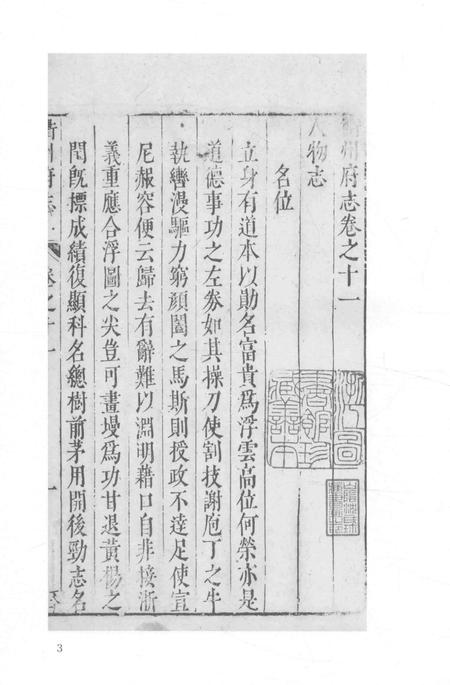 衢州府志卷之十一
人物志
名位
立身有道本以勛名富貴爲浮雲高位何榮亦是
道德事功之左券如其操刀使割技謝庖丁之牛
執轡漫驅力窮顏闔之馬斯則授政不達足使宣
尼赧容便云歸去有辭難以淵明藉口自非接淅
義重應合浮圖之尖豈可畫墁爲功甘退黃楊之
閏旣標成績復顯科名總樹前茅用開後勁志名
衢州府志
卷之十一
一
浙圖
書館珍
藏善本
3